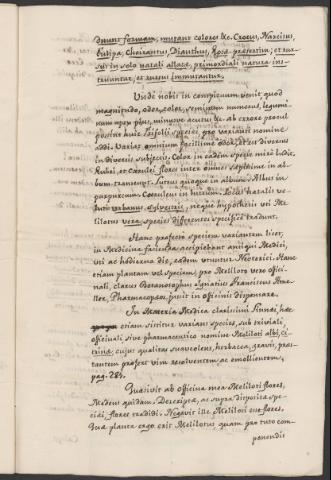 duunt formam, mutant colores &c. Crocus, Narcisus,
Tulipa, Cheirantus, Dianthus, Rosa præsertim; et rur
sus in solo natali allata, primordiali natura ins
truuntur, et rursus immutantur.
Unde nobis in conspicuum venit quod
magnitudo, odor, color, seminum numerus, legumi
num apex plus, minusve acutus &c. ab errore procul
possint huic Trifolii speciei pro variante nomine
addi. Varias omnium facillime odor, et est diversus
in diversis subjectis. Color in eadem specie mire ludit.
Rubri, et Cærulei flores inter omnes sæpissime in al
bum transeunt. Luteus quoque in albidum. Albus in
purpureum. Cæruleus in luteum. Locus natalis ve
luti urbanus, sylvestris, neque hypothesis vel Me
lilotus vera species differentes specificè tradunt.
Hanc profecto speciem variantem licet,
in Medicina facienda accipiebant antiqui Medici,
uti ac hodierna die, eadem utuntur Neoterici. Hanc
etiam plantam vel speciem, pro Meliloto vero offici
nali, clarus Botanosophus Ignatius Franciscus Ame
ller, Pharmacopæus, jussit in officinis dispensare.
In Materia Medica clarissimi Linnæi, hæc
etiam sistitur varians species, sub triviali,
officinali sive pharmaceutico nomine Meliloti albi, ci
trinæ, cujus qualitas suaveolens, herbacea, gravis, præs
tantem præfert vim resolventem, ac emollientem,
pag. 284.
Quæsivit ab officina mea Meliloti flores,
Medicus quidam. Descriptæ, ac supra disposita spe
ciei, flores tradidi. Negavit ille Meliloti esse flores.
Quæ planta ergo erit Melilotus quam pro tuto com
ponendis